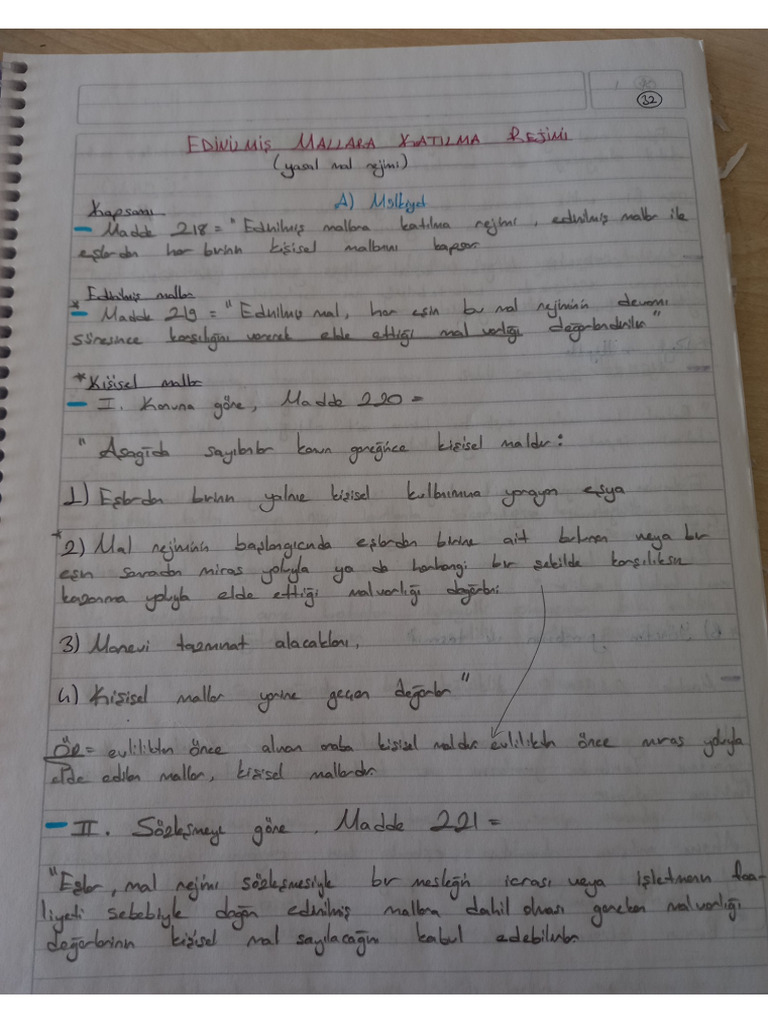 32
EDİNİLMİŞ MALLARA KATILMA REJİMİ
(yasal mal rejimi)
A) Mülkiyet
Kapsamı
- Madde 218 = "Edinilmiş mallara katılma rejimi, edinilmiş mallar ile
eşlerden her birinin kişisel mallarını kapsar
Edinilmiş mallar
* - Madde 219 = "Edinilmiş mal, her eşin bu mal rejiminin devamı
süresince karşılığını vererek elde ettiği mal varlığı değerlerindedir"
* Kişisel mallar
- I. Kanuna göre, Madde 220 =
"Aşağıda sayılanlar kanun gereğince kişisel maldır:
1) Eşlerden birinin yalnız kişisel kullanımına yarayan eşya
* 2) Mal rejiminin başlangıcında eşlerden birine ait bulunan veya bir
eşin sonradan miras yoluyla ya da herhangi bir şekilde karşılıksız
kazanma yoluyla elde ettiği malvarlığı değerleri
3) Manevi tazminat alacakları,
4) Kişisel mallar yerine geçen değerler"
ÖR = evlilikten önce alınan araba kişisel maldır. evlilikten önce miras yoluyla
elde edilen mallar, kişisel mallardır.
- II. Sözleşmeye göre, Madde 221 =
"Eşler, mal rejimi sözleşmesiyle bir mesleğin icrası veya işletmenin faa-
liyeti sebebiyle doğan edinilmiş mallara dahil olması gereken malvarlığı
değerlerinin kişisel mal sayılacağını kabul edebilirler.